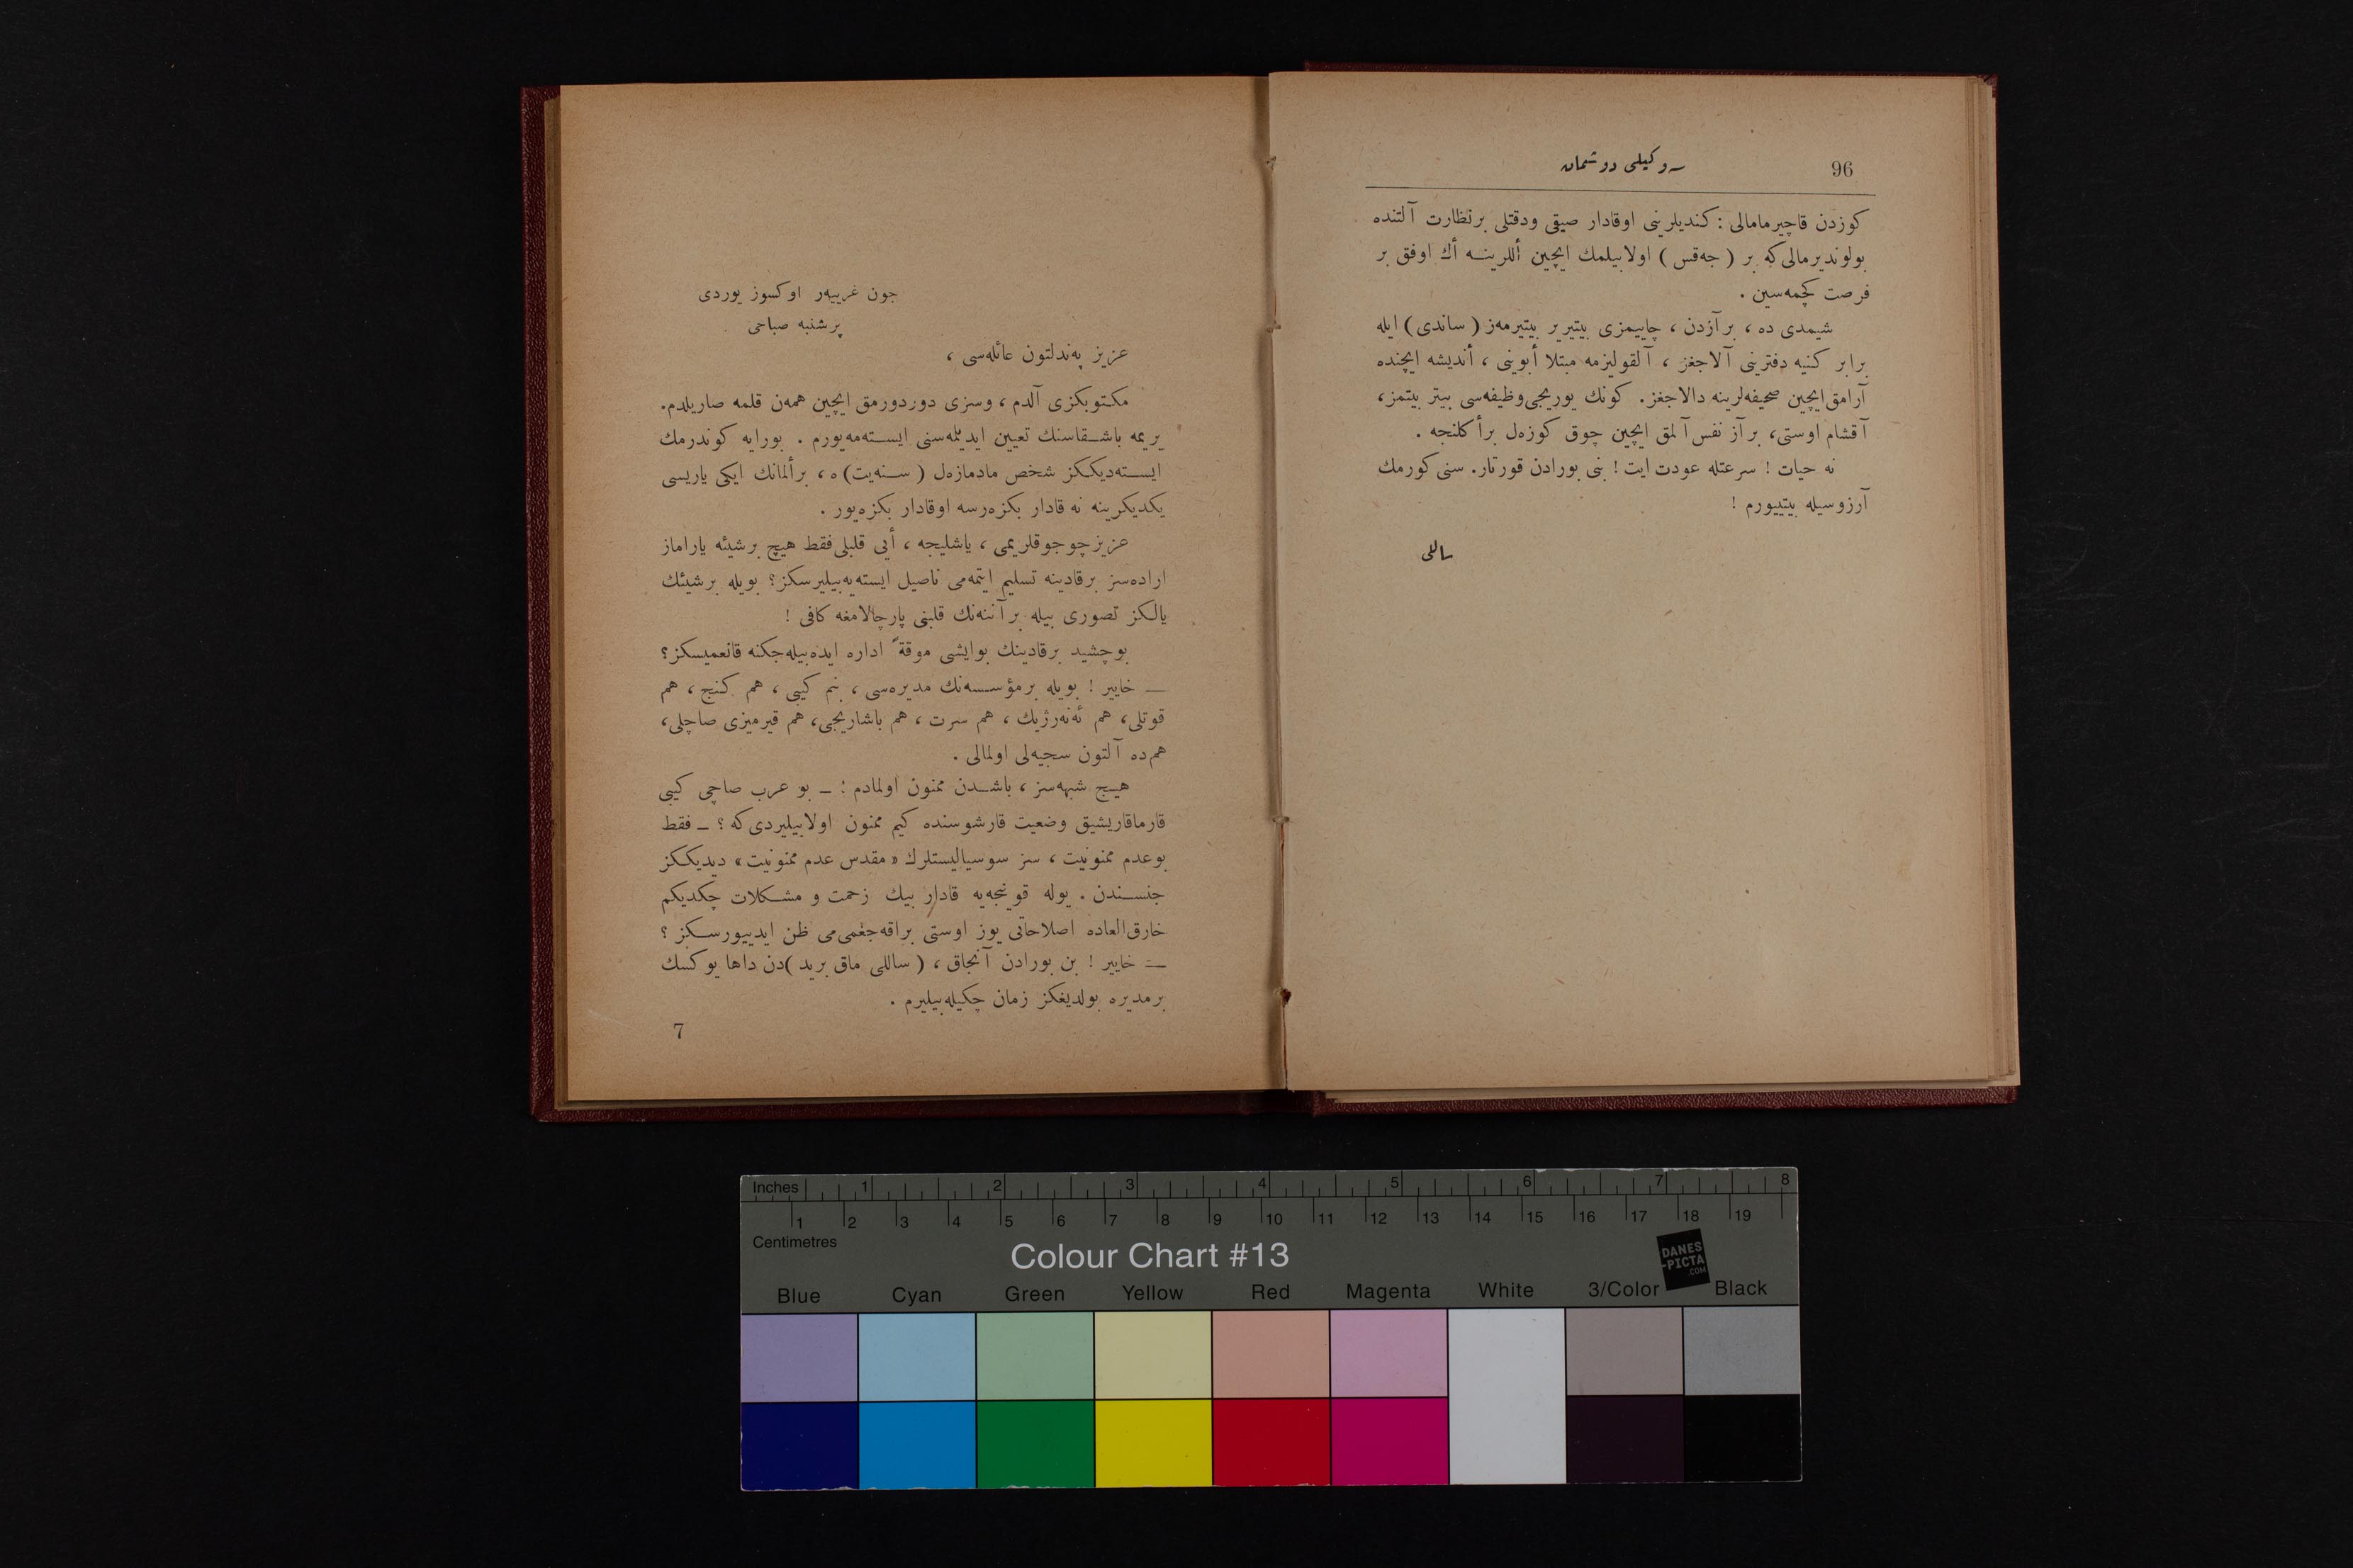 96
سوكیلی دوشمان
كوزدن قاچیرمامالی : كندیلرینی اوقادار صیقی ودقتلی برنظارت آلتنده
بولوندیرمالی كه بر ( جه‌قس ) اولابیلمك ایچین أللرینه أك اوفق بر
فرصت كچمه‌سین .
شیمدی ده ، بر آزدن ، چاییمزی بیتیریر بیتیرمه‌ز ( ساندی ) ایله
برابر كنیه دفترینی آلاجغز ، آلقولیزمه مبتلا أبوینی ، أندیشه ایچنده
آرامق ایچین صحیفه‌لرینه دالاجغز. كونك یوریجی وظیفه‌سی بیتر بیتمز،
آقشام اوستی، بر آز نفس آلمق ایچین چوق كوزه‌ل برأكلنجه .
نه حیات ! سرعتله عودت ایت ! بنی بورادن قورتار. سنی كورمك
آرزوسیله بیتییورم !
ساللی
جون غرییه‌ر اوكسوز یوردی
پرشنبه صباحی
عزیز په‌ندلتون عائله‌سی ،
مكتوبكزی آلدم ، وسزی دوردورمق ایچین همه‌ن قلمه صاریلدم.
یریمه باشقاسنك تعیین ایدیلمه‌سنی ایسته‌مه‌یورم . بورایه كوندرمك
ایسته‌دیككز شخص مادمازه‌ل ( سنه‌یت ) ه ، برألمانك ایكی یاریسی
یكدیكرینه نه قادار بكزه‌رسه اوقادار بكزه‌یور .
عزیز چوجوقلریمی ، یاشلیجه ، أیی قلبلی فقط هیچ برشیئه یاراماز
اراده‌سز برقادینه تسلیم ایتمه‌می ناصیل ایسته‌یه‌بیلیرسكز؟ بویله برشیئك
یالكز تصوری بیله بر آننه‌نك قلبنی پارچالامغه كافی !
بوچشید برقادینك بوایشی موقةً اداره ایده‌بیله‌جكنه قانعمیسكز؟
— خاییر ! بویله برمؤسسه‌نك مدیره‌سی ، بنم كیبی ، هم كنج ، هم
قوتلی، هم ئه‌نه‌رژیك ، هم سرت ، هم باشاریجی، هم قیرمیزی صاچلی،
هم‌ده آلتون سجیه‌لی اولمالی .
هیچ شبهه‌سز ، باشدن ممنون اولمادم : ـ بو عرب صاچی كیبی
قارماقاریشیق وضعیت قارشوسنده كیم ممنون اولابیلیردی كه ؟ ـ فقط
بوعدم ممنونیت ، سز سوسیالیستلرك « مقدس عدم ممنونیت » دیدیككز
جنسندن . یوله قونجه‌یه قادار بیك زحمت و مشكلات چكدیكم
خارق‌العاده اصلاحاتی یوز اوستی براقه‌جغمی‌می ظن ایدییورسكز ؟
— خاییر ! بن بورادن آنجاق ، ( ساللی ماق برید )دن داها یوكسك
برمدیره بولدیغكز زمان چكیله‌بیلیرم .
7
Inches 1 2 3 4 5 6 7 8
1 2 3 4 5 6 7 8 9 10 11 12 13 14 15 16 17 18 19
Centimetres
Colour Chart #13
DANES
-PICTA
.COM
Blue Cyan Green Yellow Red Magenta White 3/Color Black